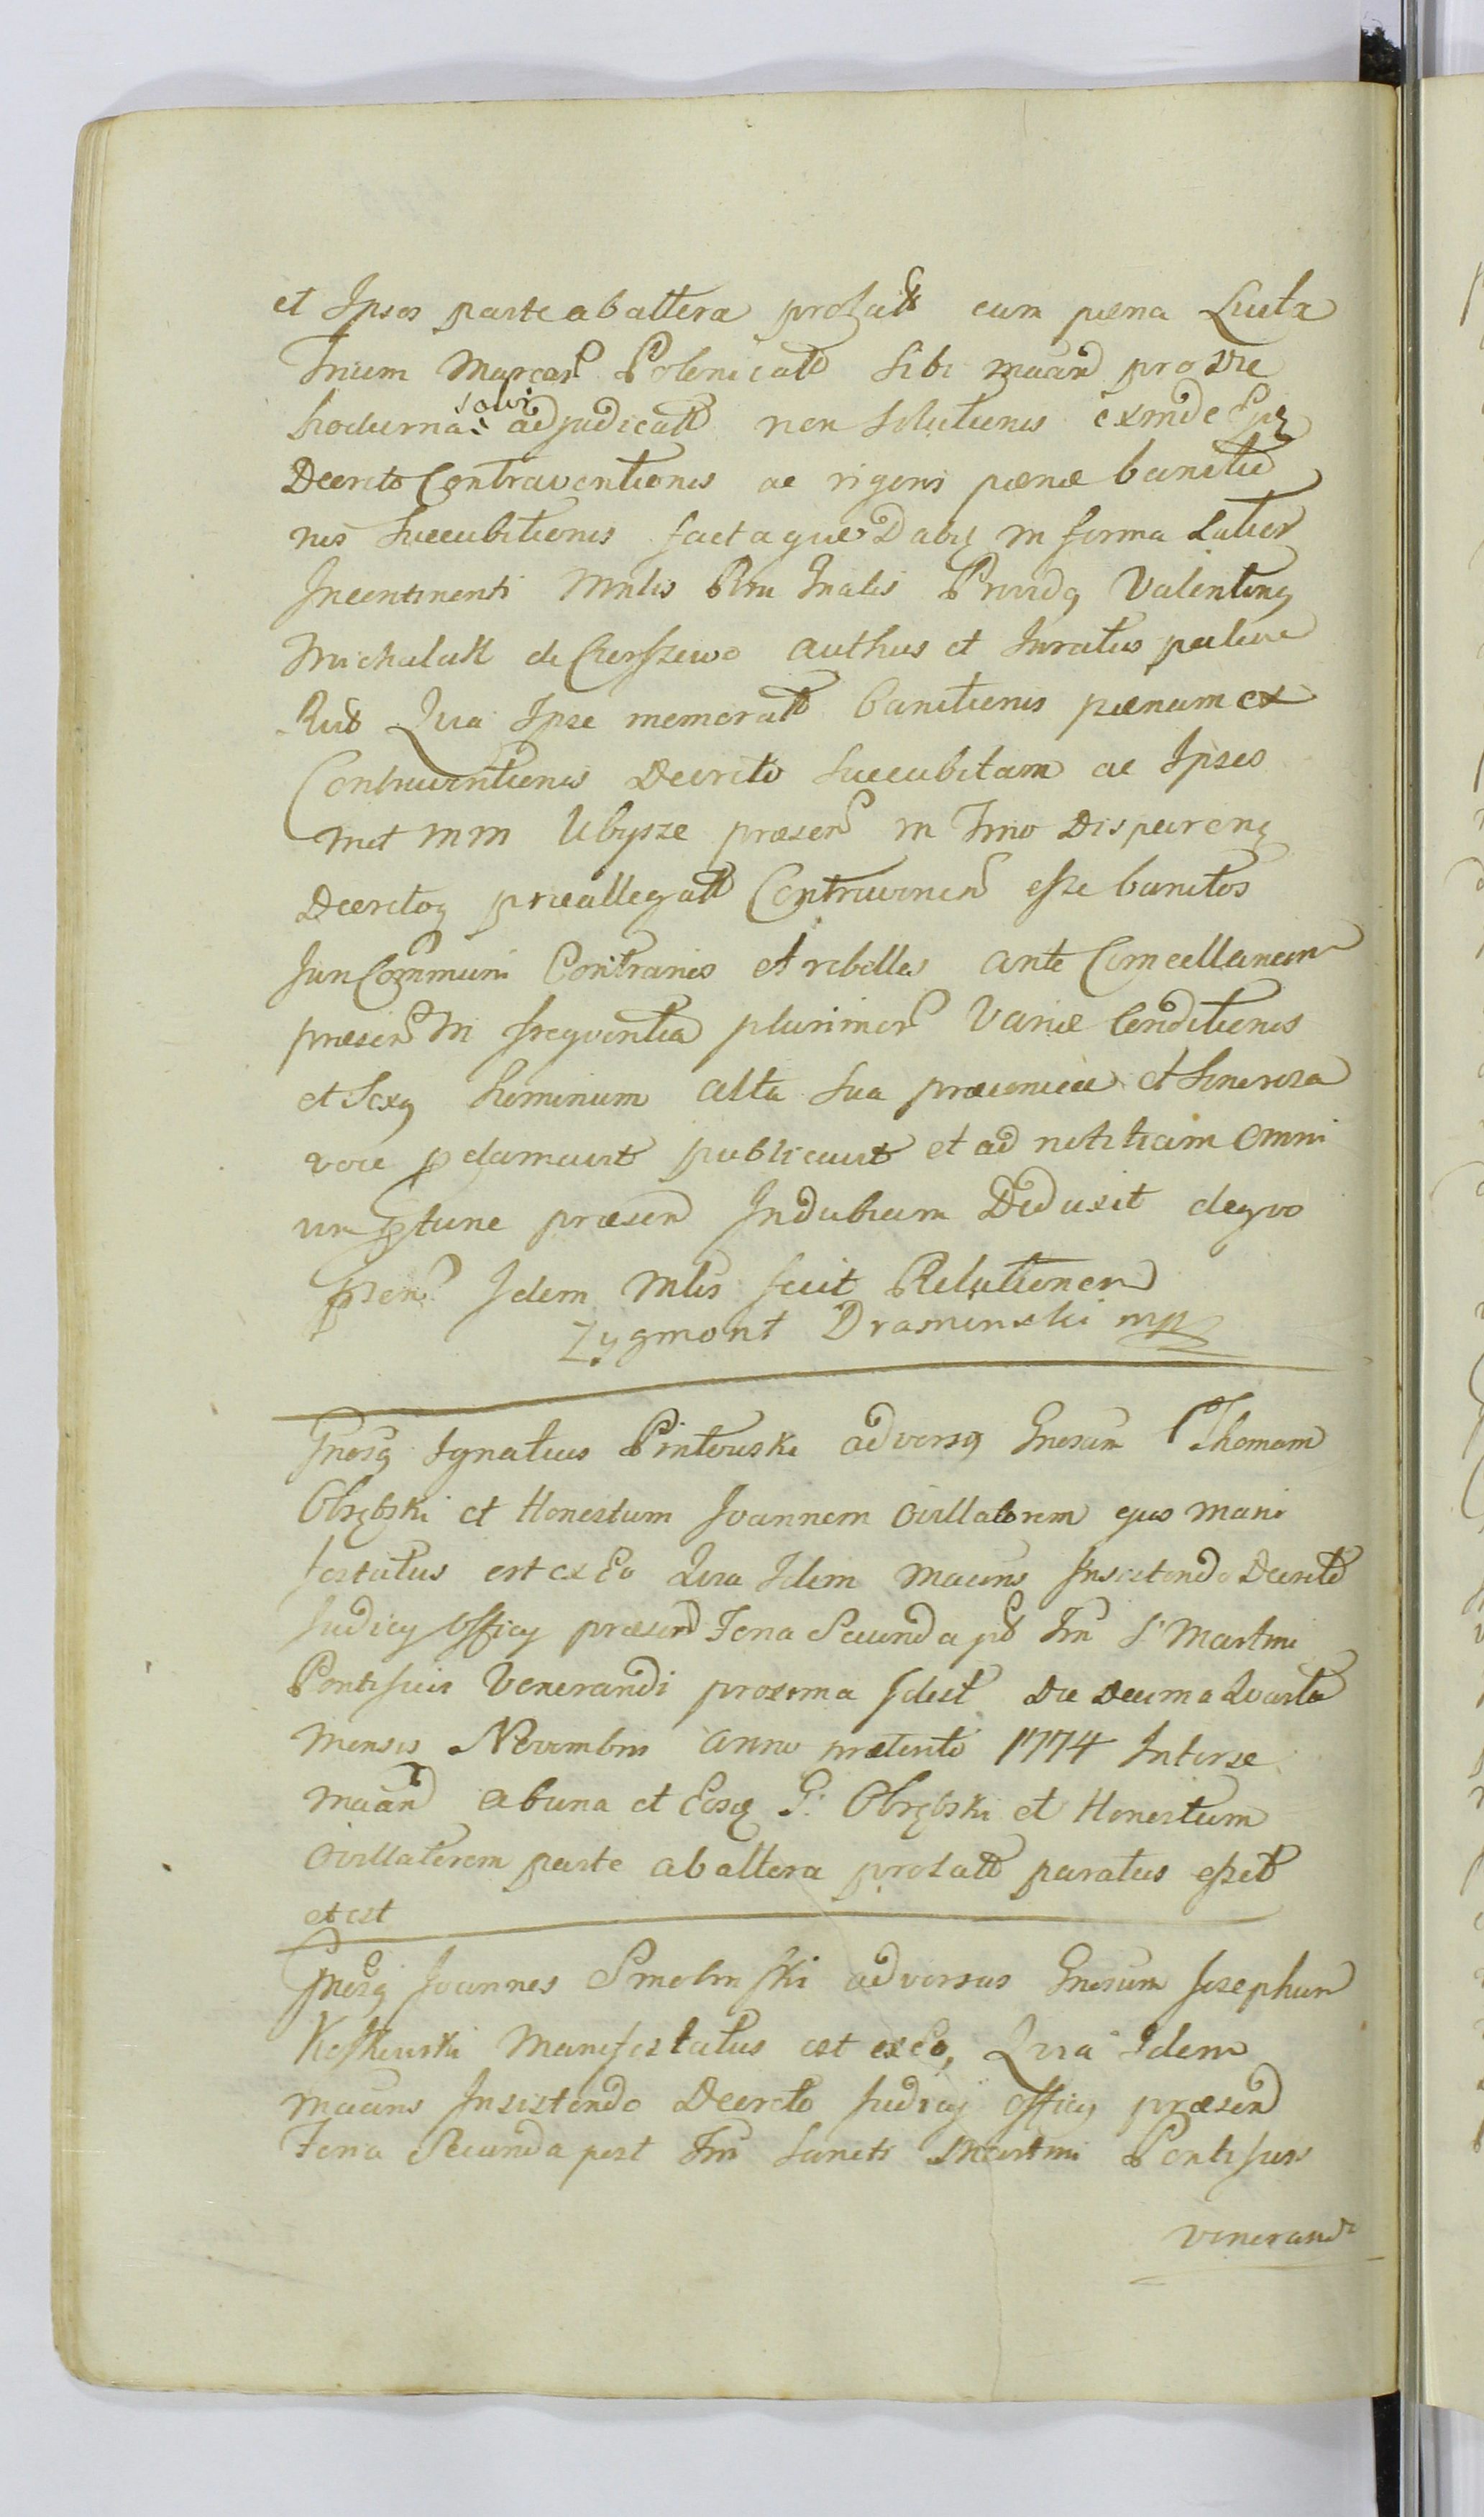 et Ipsos parte ab altera prolatt cum pæna Luita
Trium Marcar Polonicall Sibi Maan pro Die
hodierna solvi adjudicatt non Solutionis exinde Ejq
Decreto Contraventionis ac rigoni pænæ banitio
nis Succubitionis factaque Dabit in forma Latior
Incontinenti Mnlis Rm Gnalis Providq Valentinq
Michalak de Cherszewo authus et Juratus palice
Quia Ipse memoratt banitionis pænam ex
Contraventionis Decreto Succubitam ac Ipsos
met mm Ubysze præsen in Tmo Disparenq
Decretoq præallegatt Contravenien esse banitos
Juri Communi Contrarios et rebelles ante Cancellariam
præsen in frequentia plurimor Variæ Conditionis
et Sexq hominum alta Sua præconica et Sonorosa
voce pclamavit publicavit et ad notitiam Omni
um tunc præsen Indubiam Deduxit de quo
pzen Idem Mlis fecit Relationem
Zygmont Drasminski mp
Gnosq Ignatius Pintowski adversq Gnosum Thomam
Obrębski et Honestum Joannem Oivillatorem ejus Mani
festatus est ex Eo Quia Idem Maciens Insistendo Decreto
Judicij Officij præsen Feria Secunda pt Fm S Martini
Pontificis Venerandi proxima Idest Die Decima Quarta
Mensis Novembris anno præterito 1774 Inter se
Maan ab una et Eosq G: Obrębski et Honestum
Oivillatorem parte ab altera prolatt paratus eszet
et est
Gnosq Joannes Smolinski adversus Gnosum Josephum
Koskowski Manifestatus est ex Eo, Quia Idem
Maciens Insistendo Decreto Judicij Officij præsen
Feria Secunda post Fm Sancti Martini Pontificis
venerandi